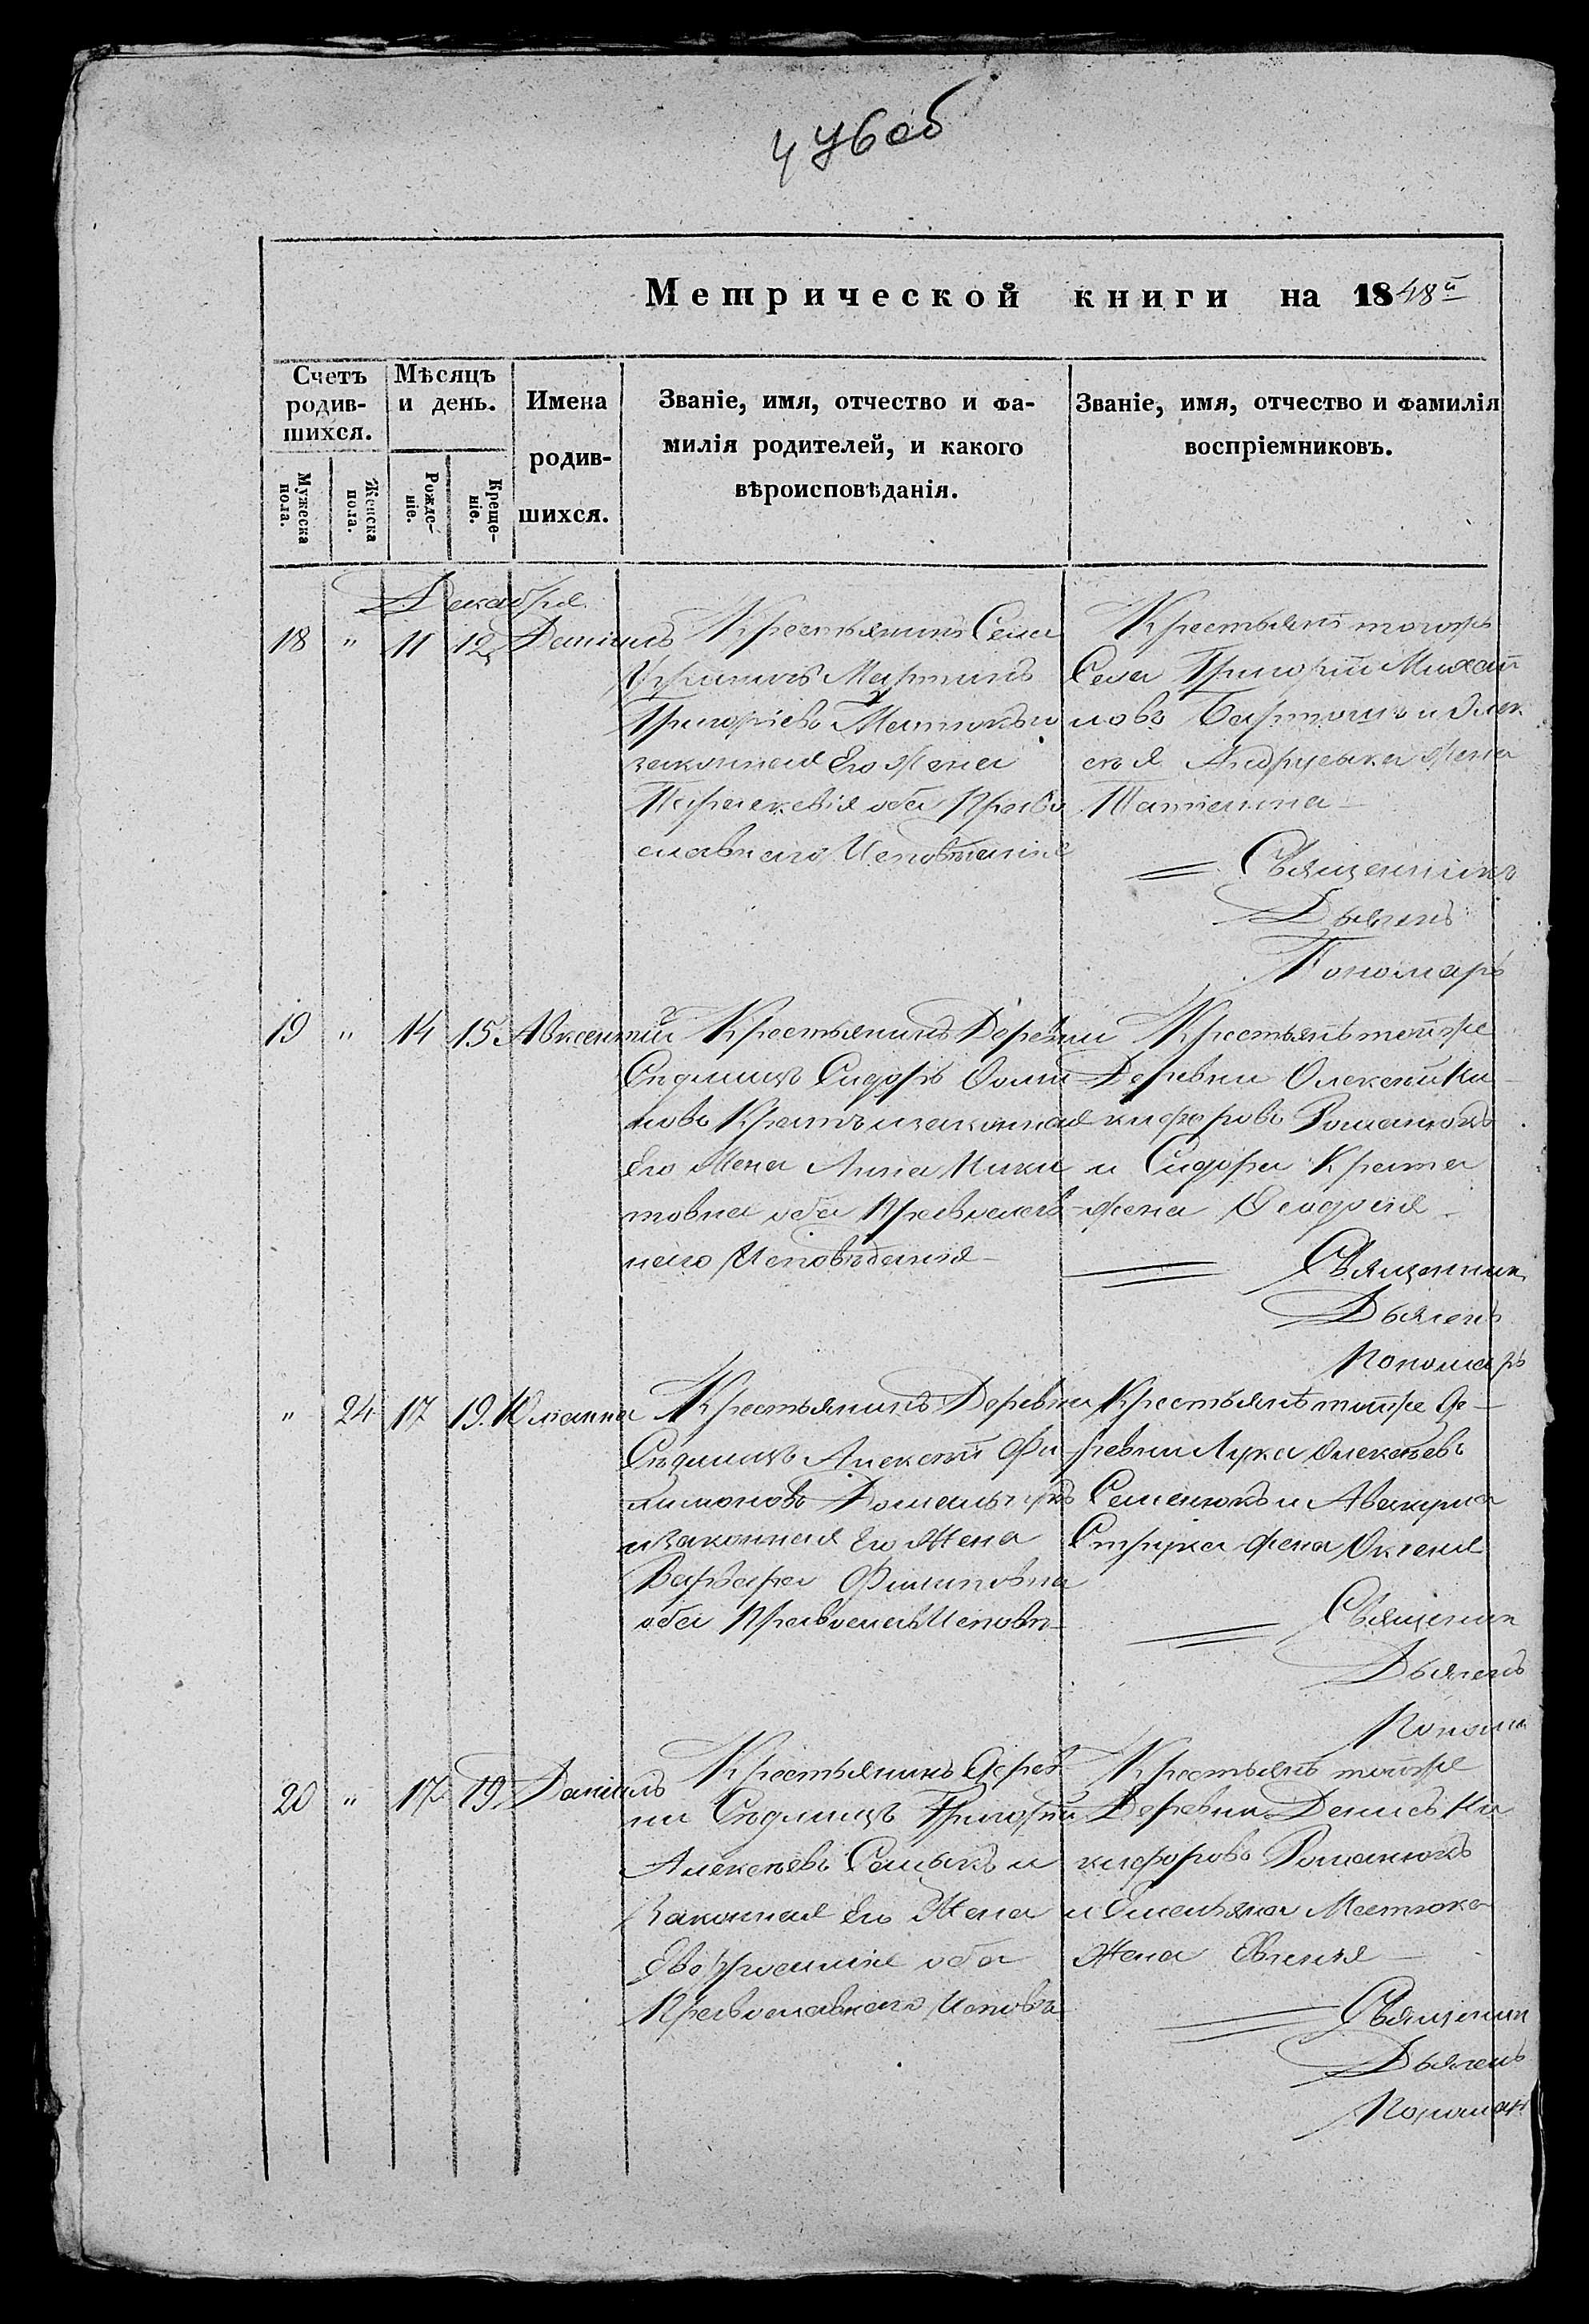 476об
Метрической книги на 1848й
Счетъ родив-шихся.
Мѣсяцъ и день.
Имена родив-шихся.
Званіе, имя, отчество и фа-
милія родителей, и какого
вѣроисповѣданія.
Званіе, имя, отчество и фамилія
воспріемниковъ.
Мужеска пола.
Женска пола.
Рожде-ніе.
Креще-ніе.
Декабря
18 " 11 12 Даніилъ
Крестьянинъ Села
Мартинъ
Григоріевъ Матюкъ и
законная Его Жена
Параскевія оба Право
славнаго Исповѣданія
Крестьянѣ тогожъ
Села Григорій Михай
ловъ и Алек
сѣя Андрусыка жена
Татіанна
Священникъ
Дьячекъ
Пономарь
19 " 14 15 Авксентій
Крестьянинъ Деревни
Сѣдлищъ Сидоръ Фоми
новъ Кратъ и законная
Его Жена Анна Ники
товна оба Православ
наго Исповѣданія
Крестьянѣ тойже
Деревни Олексѣй Ни
кифоровъ Романюкъ
и Сидора Крата
жена Феодосія
Священник
Дьячекъ
Пономарь
" 24 17 19. Юліанна
Крестьянинъ Деревни
Сѣдлищъ Алексѣй Фи
лимоновъ
и законная Его Жена
Варвара Филиповна
оба Православ Исповѣ
Крестьянѣ тойже Де-
ревни Лука Олексѣевъ
Семенюкъ и Авакума
жена Оксенія
Священик
Дьячекъ
Поном
20 " 17 19 Даніилъ
Крестьянинъ Дерев
ни Сѣдлищъ Григорій
Алексѣевъ и
Законная Его Жена
Евфросинія оба
Православнаго Исповѣ
Крестьянѣ тойже
Деревни Денисъ Ни
кифоровъ Романюкъ
и Емельяна Матюка
Жена Евгенія
Священик
Дьячекъ
Пономарь